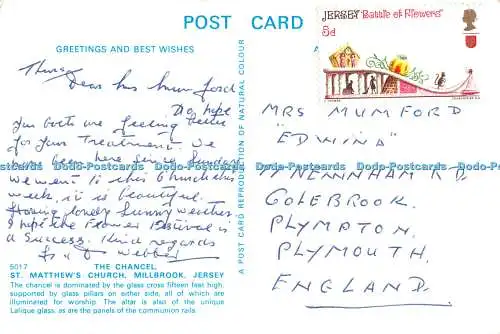 POST CARD
GREETINGS AND BEST WISHES
A
JERSEY "Battle of Flowers"
5d
Thurs
Dear Mrs Mumford
Do hope
you both are feeling better
for your Treatment. We
have been here since Sunday
we went to this Church this
week, it is beautiful.
Having lovely sunny weather.
I hope the Flower Festival is
a Success. Kind regards
Webber
MRS MUMFORD
"EDWINA"
RD
COLEBROOK.
PLYMPTON.
PLYMOUTH.
ENGLAND.
A POST CARD REPRODUCTION OF NATURAL COLOUR
5017 THE CHANCEL,
ST. MATTHEW'S CHURCH, MILLBROOK, JERSEY
The chancel is dominated by the glass cross fifteen feet high,
supported by glass pillars on either side, all of which are
illuminated for worship. The altar is also of the unique
Lalique glass, as are the panels of the communion rails
Dodo-Postcards Dodo-Postcards Dodo-Postcards Dodo-Postcards